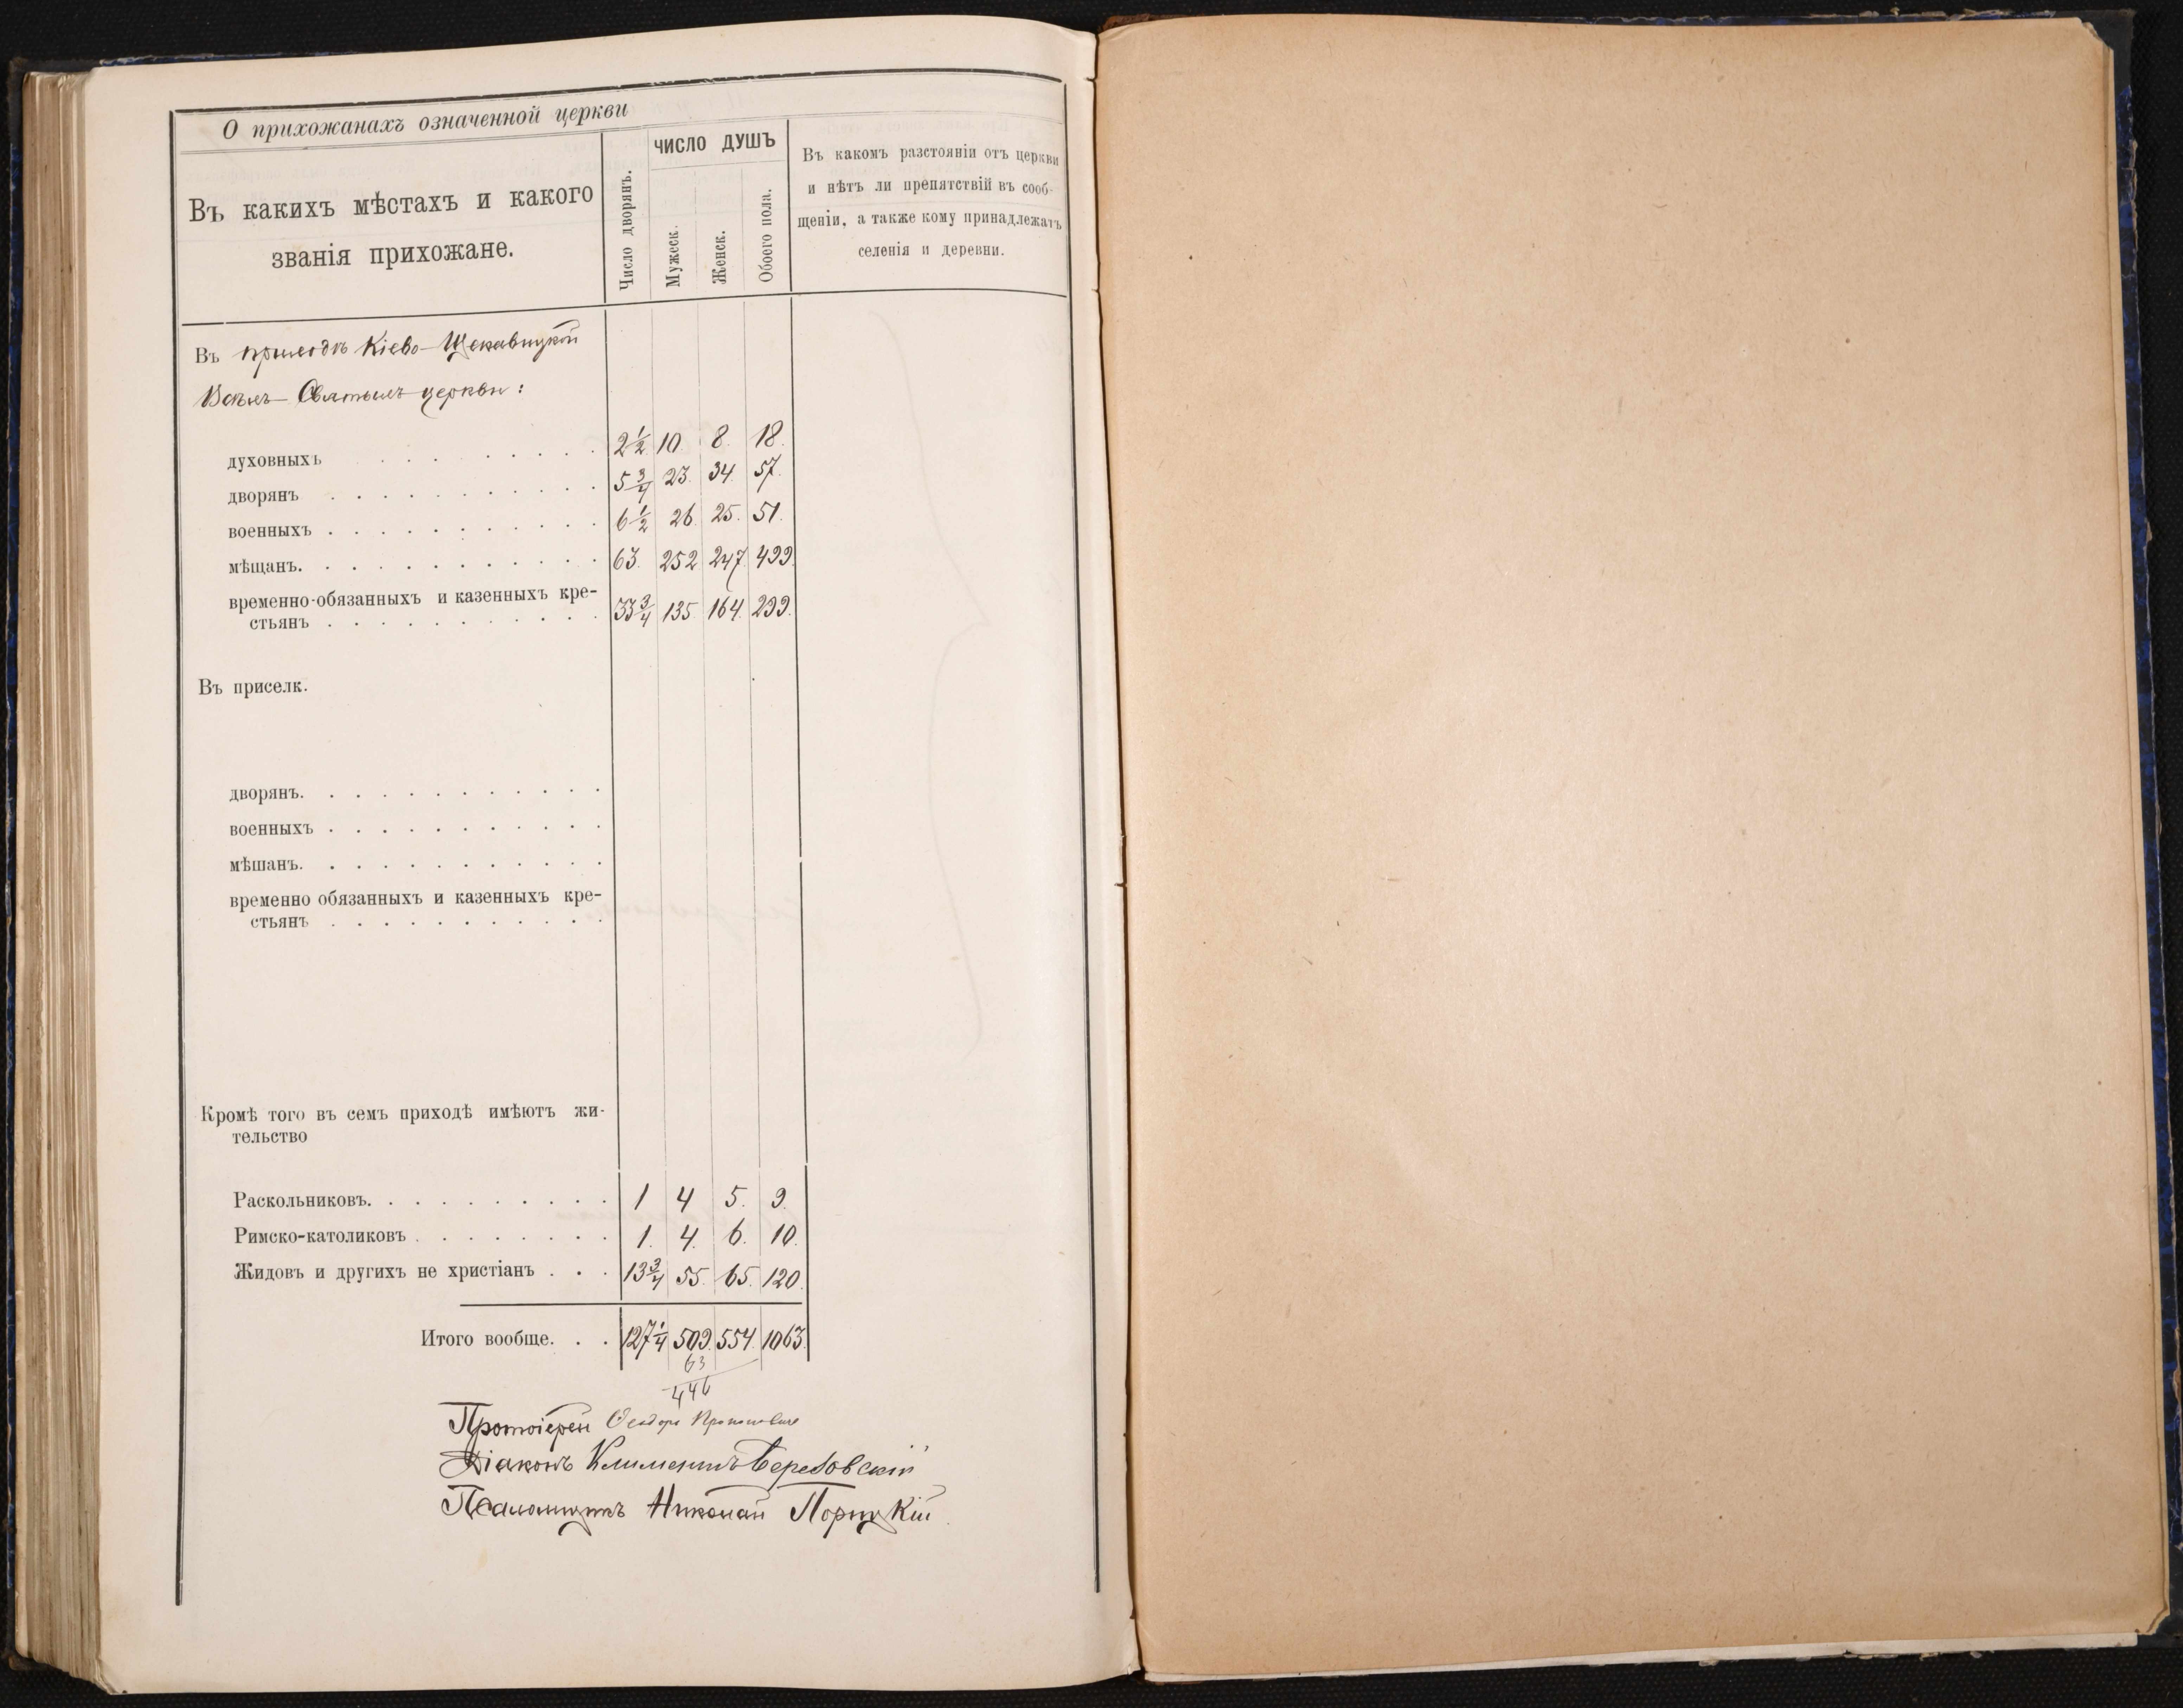 О прихожанахъ означенной церкви
Въ какихъ мѣстахъ и какого
званія прихожане.
Число дворянъ.
ЧИСЛО ДУШЪ
Мужеск.
Женск.
Обоего пола.
Въ какомъ разстояніи отъ церкви
и нѣтъ ли препятствій въ сооб-
щеніи, а также кому принадлежатъ
селенія и деревни.
Въ приходѣ Кіево-Щекавицкой
Всѣхъ-Святыхъ церкви:
духовныхъ . . . . . . . . . 2 1/2 10. 8. 18.
дворянъ . . . . . . . . . . . 5 3/4 23. 34. 57.
военныхъ . . . . . . . . . . . 6 1/2 26. 25. 51.
мѣщанъ. . . . . . . . . . . . 63. 252 247. 499.
временно-обязанныхъ и казенныхъ кре-
стьянъ . . . . . . . . . . . 33 3/4 135. 164. 299.
Въ приселк.
дворянъ. . . . . . . . . . . .
военныхъ . . . . . . . . . . .
мѣшанъ. . . . . . . . . . . .
временно обязанныхъ и казенныхъ кре-
стьянъ . . . . . . . . . . .
Кромѣ того въ семъ приходѣ имѣютъ жи-
тельство
Раскольниковъ. . . . . . . . . . 1 4 5. 9.
Римско-католиковъ . . . . . . . . 1. 4. 6. 10.
Жидовъ и другихъ не христіанъ . . . 13 3/4 55. 65. 120.
Итого вообще. . . 127 1/4 509. 554. 1063.
63
446
Протоіерей Ѳеодоръ
Діаконъ Климентъ Березовскій
Псаломщикъ Николай Порицкій